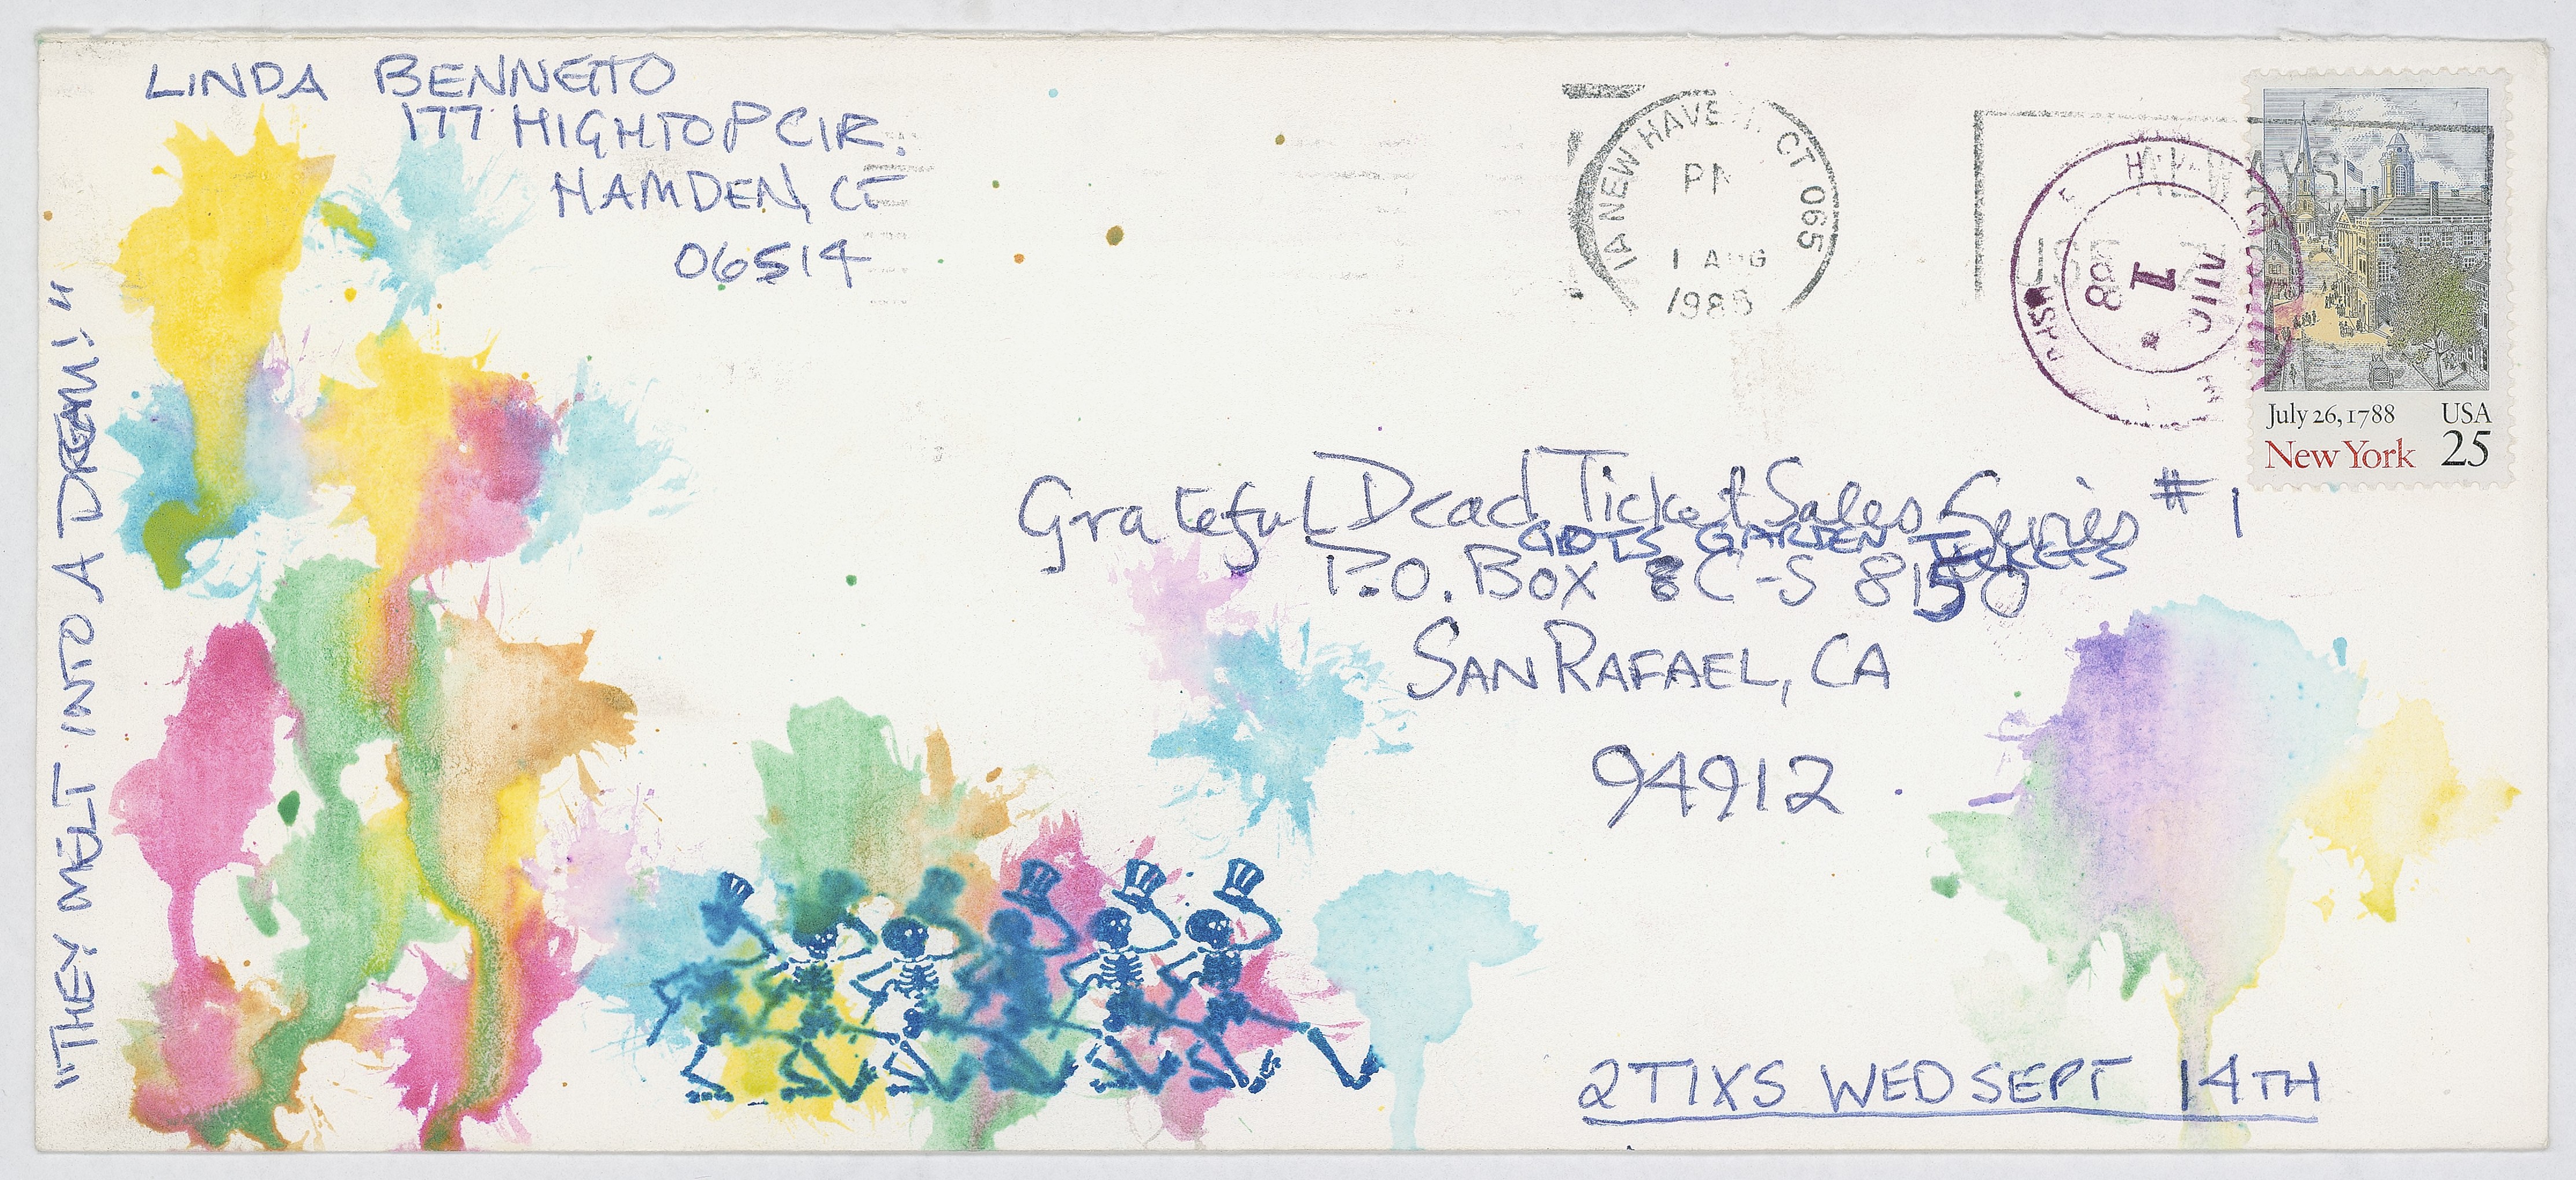 LINDA BENNETTO
177 HIGHTOP CIR.
HAMDEN, CT
06514
"THEY MELT INTO A DREAM!"
NEW HAVEN, CT 065
PM
1 AUG
1988
USPS
AUG
1
88
July 26, 1788 USA
New York 25
Grateful Dead Ticket Sales Series #1
GDTS GARDEN TICKETS
P.O. Box C-S 8150
SAN RAFAEL, CA
94912
2 TIXS WED SEPT 14TH